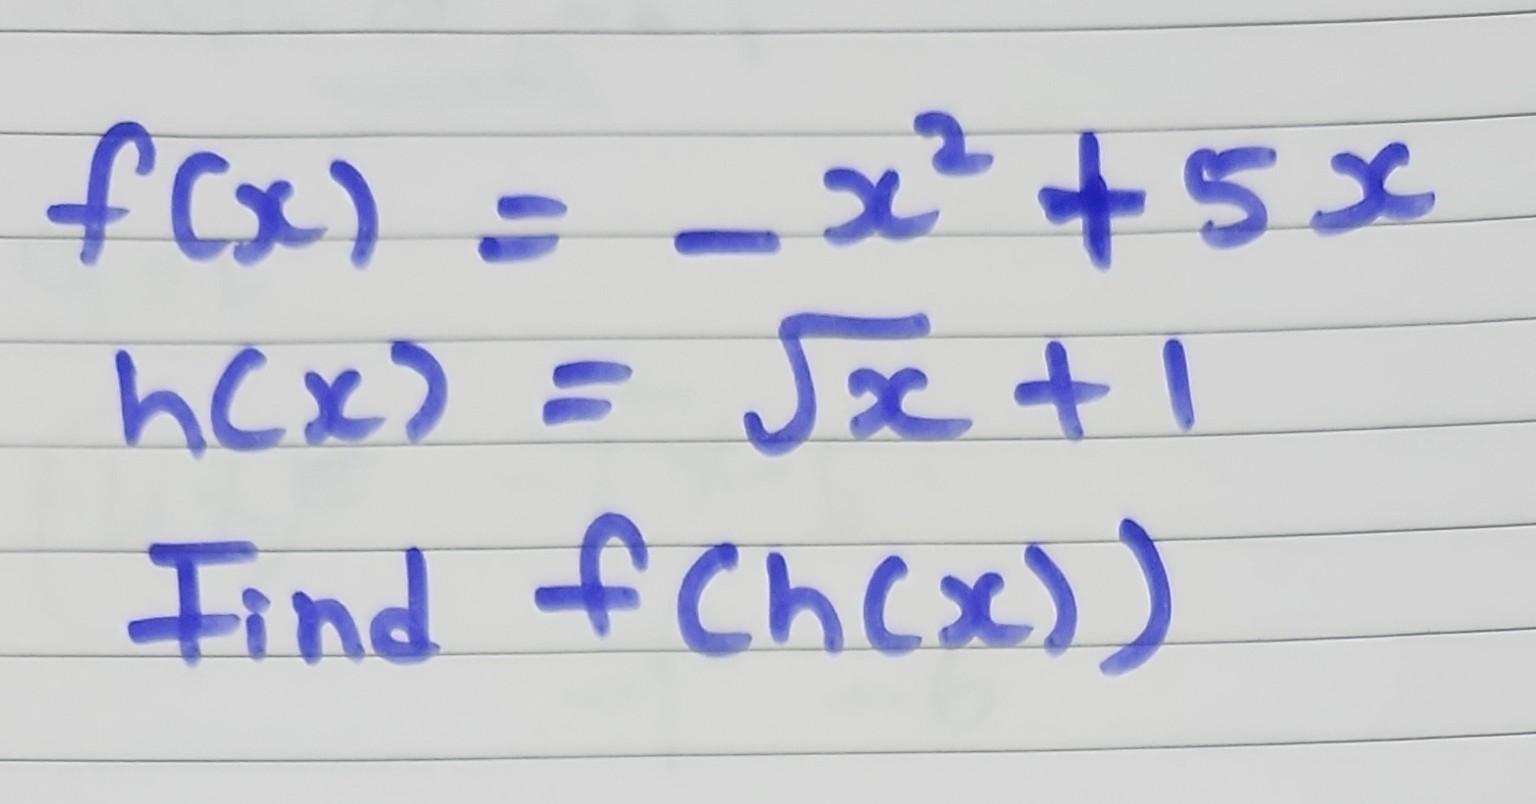 f(x) = -x² + 5x
h(x) = √x + 1
Find f(h(x))